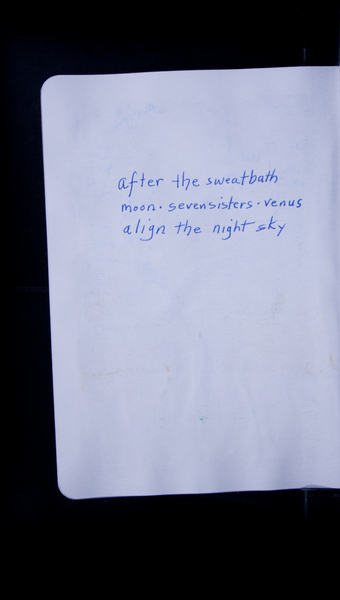 after the sweatbath
moon · sevensisters · venus
align the night sky